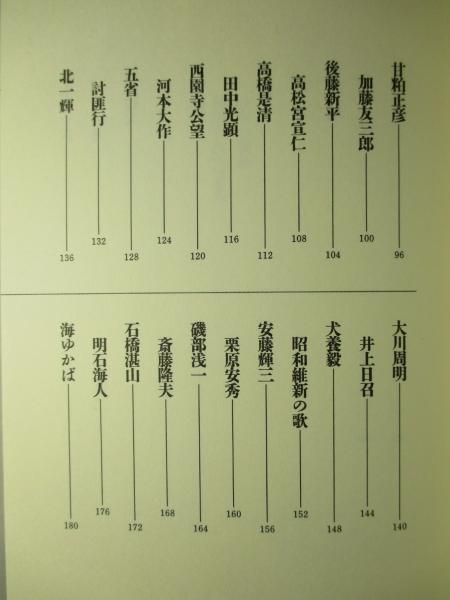 甘粕正彦 96
加藤友三郎 100
後藤新平 104
高松宮宣仁 108
高橋是清 112
田中光顕 116
西園寺公望 120
河本大作 124
五省 128
討匪行 132
北一輝 136
大川周明 140
井上日召 144
犬養毅 148
昭和維新の歌 152
安藤輝三 156
栗原安秀 160
磯部浅一 164
斎藤隆夫 168
石橋湛山 172
明石海人 176
海ゆかば 180